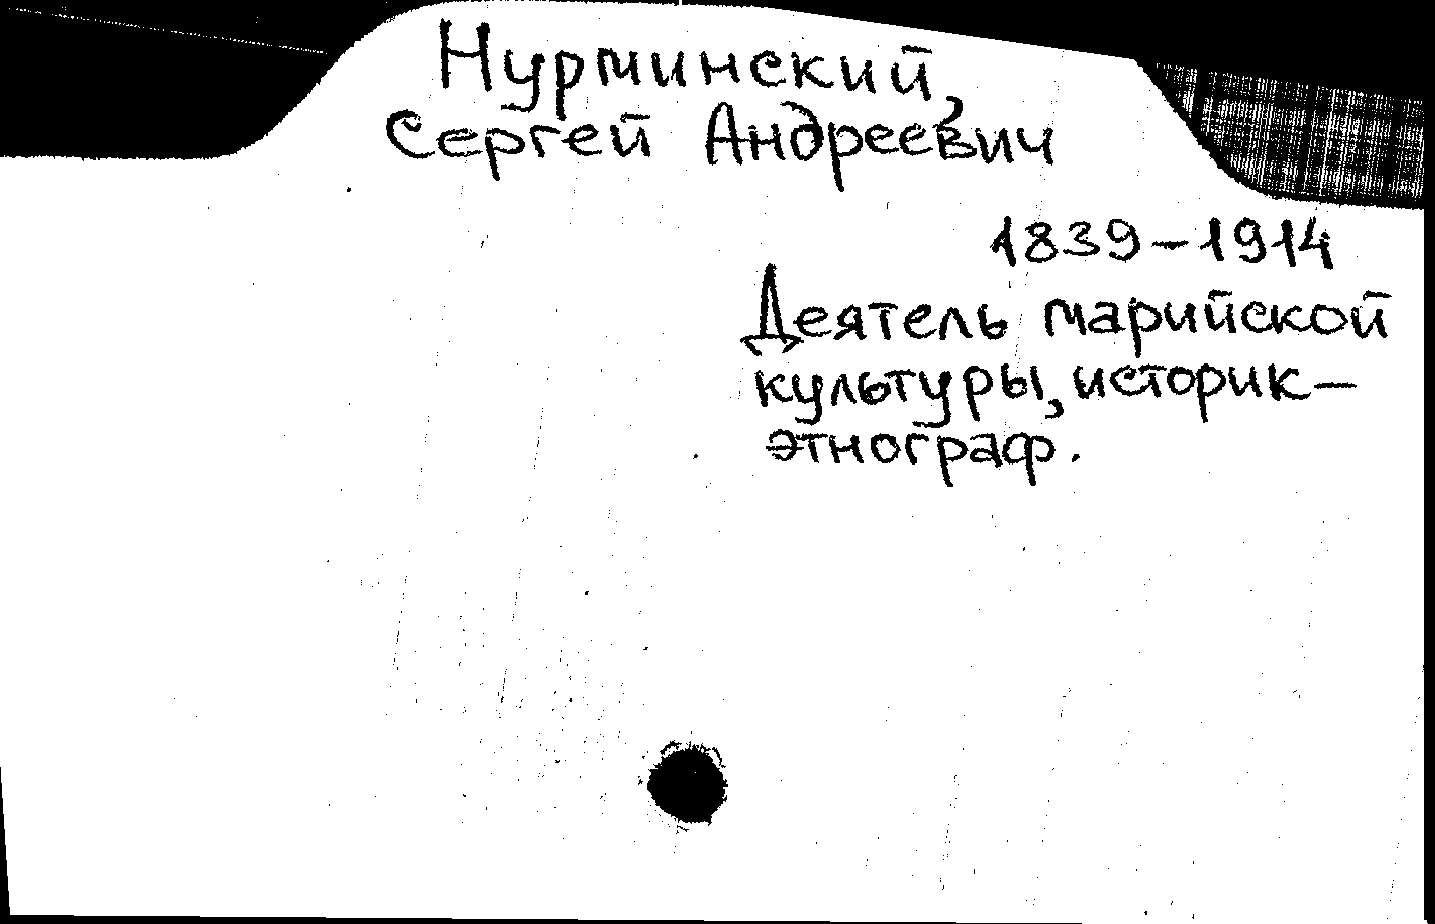 Нурминский,
Сергей Андреевич
1839–1914
Деятель марийской
культуры, историк–
этнограф.